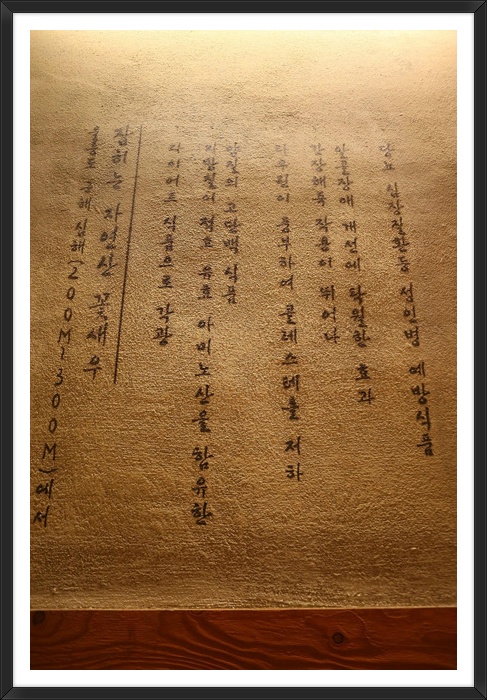 울릉도 근해 심해(200M~300M)에서
잡히는 자연산 꽃새우
다이어트 식품으로 각광
지방질이 적고 유효 아미노산을 함유한
양질의 고단백 식품
타우린이 풍부하여 콜레스테롤 저하
간장해독 작용이 뛰어나
알콜장애 개선에 탁월한 효과
당뇨 심장질환등 성인병 예방식품